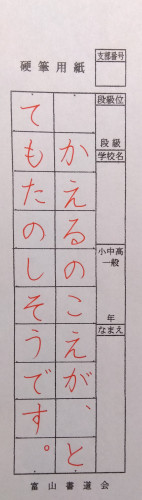 硬筆用紙
支部番号
段級位
段級
学校名
小中高
一般
年
なまえ
かえるのこえが、と
てもたのしそうです。
富山書道会